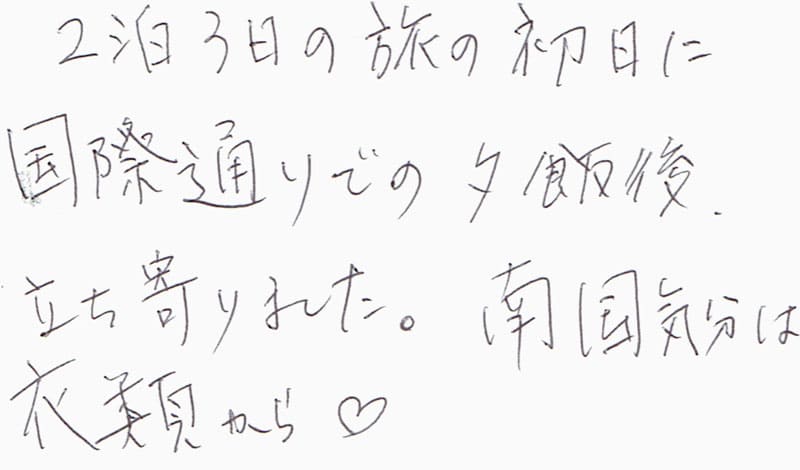 2泊3日の旅の初日に
国際通りでの夕飯後.
立ち寄りました。南国気分は
衣類から♡